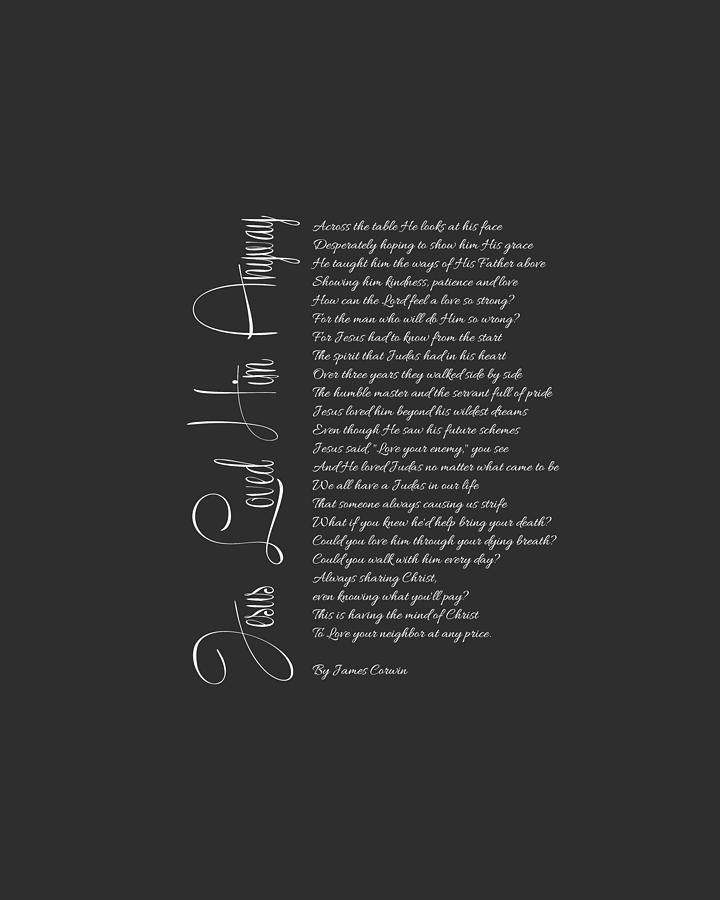 Jesus Loved Him Anyway
Across the table He looks at his face
Desperately hoping to show him His grace
He taught him the ways of His Father above
Showing him kindness, patience and love
How can the Lord feel a love so strong?
For the man who will do Him so wrong?
For Jesus had to know from the start
The spirit that Judas had in his heart
Over three years they walked side by side
The humble master and the servant full of pride
Jesus loved him beyond his wildest dreams
Even though He saw his future schemes
Jesus said, "Love your enemy," you see
And He loved Judas no matter what came to be
We all have a Judas in our life
That someone always causing us strife
What if you knew he'd help bring your death?
Could you love him through your dying breath?
Could you walk with him every day?
Always sharing Christ,
even knowing what you'll pay?
This is having the mind of Christ
To Love your neighbor at any price.
By James Corwin